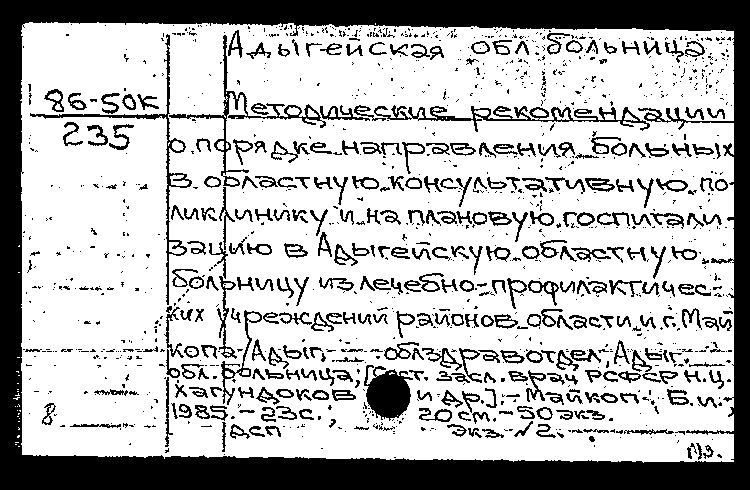 Адыгейская обл. больница
86-50к
235
Методические рекомендации
о порядке направления больных
в областную консультативную по-
ликлинику и на плановую госпитали-
зацию в Адыгейскую областную
больницу из лечебно-профилактичес-
ких учреждений районов области и г. Май
копа / Адыг. облздравотдел, Адыг.
обл. больница; [Сост. засл. врач РСФСР Н.Ц.
Хагундоков и др.]. - Майкоп: Б.и.,
1985. - 23с.; 20см. - 50экз.
дсп экз. №2.
8